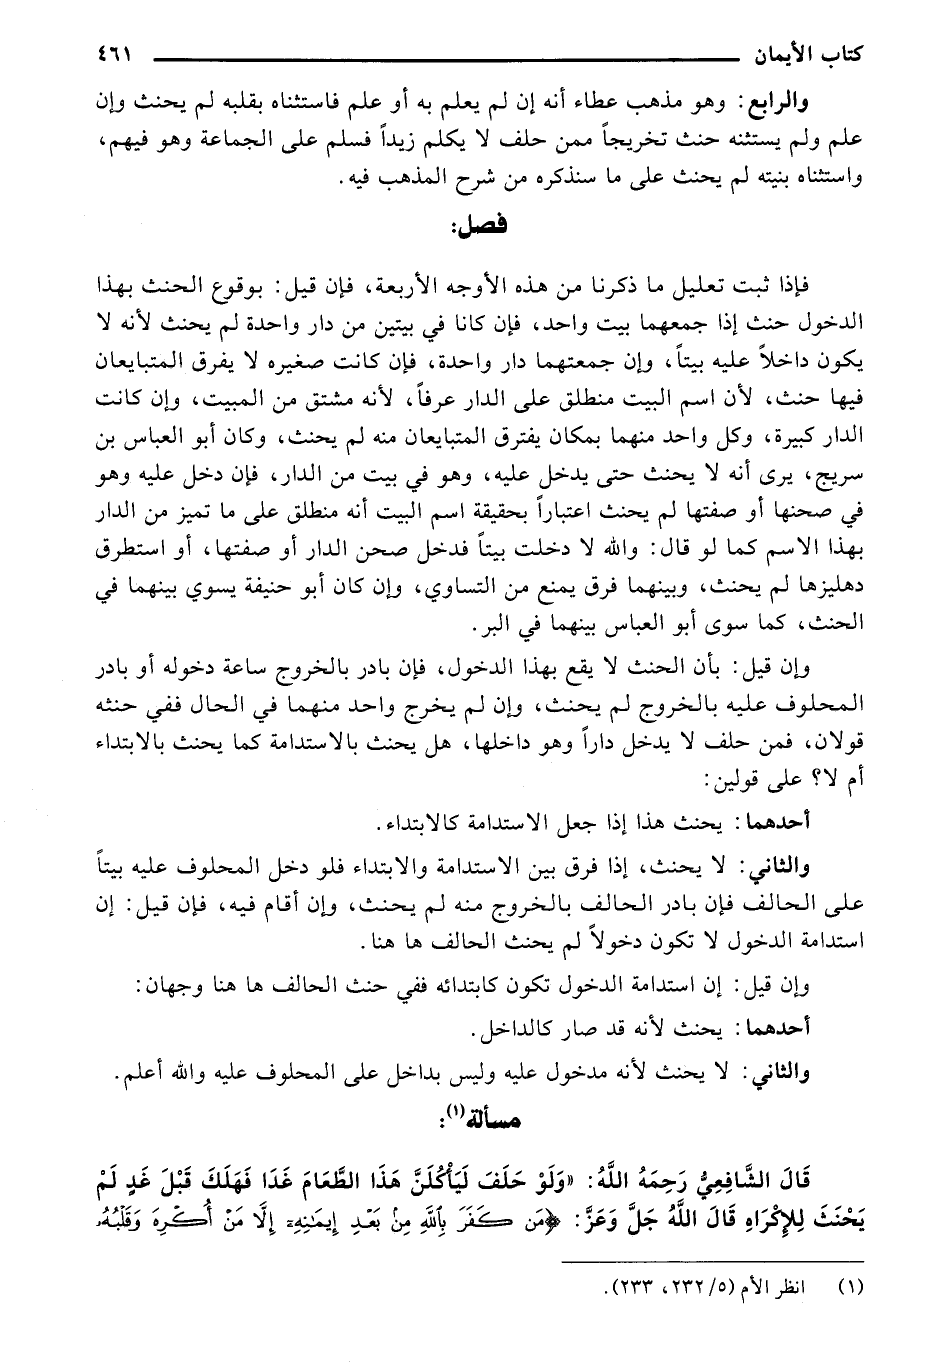 كتاب الأيمان ٤٦١
والرابع: وهو مذهب عطاء أنه إن لم يعلم به أو علم فاستثناه بقلبه لم يحنث وإن
علم ولم يستثنه حنث تخريجاً ممن حلف لا يكلم زيداً فسلم على الجماعة وهو فيهم،
واستثناه بنيته لم يحنث على ما سنذكره من شرح المذهب فيه.
فصل:
فإذا ثبت تعليل ما ذكرنا من هذه الأوجه الأربعة، فإن قيل: بوقوع الحنث بهذا
الدخول حنث إذا جمعهما بيت واحد، فإن كانا في بيتين من دار واحدة لم يحنث لأنه لا
يكون داخلاً عليه بيتاً، وإن جمعتهما دار واحدة، فإن كانت صغيره لا يفرق المتبايعان
فيها حنث، لأن اسم البيت منطلق على الدار عرفاً، لأنه مشتق من المبيت، وإن كانت
الدار كبيرة، وكل واحد منهما بمكان يفترق المتبايعان منه لم يحنث، وكان أبو العباس بن
سريج، يرى أنه لا يحنث حتى يدخل عليه، وهو في بيت من الدار، فإن دخل عليه وهو
في صحنها أو صفتها لم يحنث اعتباراً بحقيقة اسم البيت أنه منطلق على ما تميز من الدار
بهذا الاسم كما لو قال: والله لا دخلت بيتاً فدخل صحن الدار أو صفتها، أو استطرق
دهليزها لم يحنث، وبينهما فرق يمنع من التساوي، وإن كان أبو حنيفة يسوي بينهما في
الحنث، كما سوى أبو العباس بينهما في البر.
وإن قيل: بأن الحنث لا يقع بهذا الدخول، فإن بادر بالخروج ساعة دخوله أو بادر
المحلوف عليه بالخروج لم يحنث، وإن لم يخرج واحد منهما في الحال ففي حنثه
قولان، فمن حلف لا يدخل داراً وهو داخلها، هل يحنث بالاستدامة كما يحنث بالابتداء
أم لا؟ على قولين:
أحدهما: يحنث هذا إذا جعل الاستدامة كالابتداء.
والثاني: لا يحنث، إذا فرق بين الاستدامة والابتداء فلو دخل المحلوف عليه بيتاً
على الحالف فإن بادر الحالف بالخروج منه لم يحنث، وإن أقام فيه، فإن قيل: إن
استدامة الدخول لا تكون دخولاً لم يحنث الحالف ها هنا.
وإن قيل: إن استدامة الدخول تكون كابتدائه ففي حنث الحالف ها هنا وجهان:
أحدهما: يحنث لأنه قد صار كالداخل.
والثاني: لا يحنث لأنه مدخول عليه وليس بداخل على المحلوف عليه والله أعلم.
مسألة(١):
قَالَ الشَّافِعِيُّ رَحِمَهُ اللَّهُ: «وَلَوْ حَلَفَ لَيَأْكُلَنَّ هَذَا الطَّعَامَ غَدَا فَهَلَكَ قَبْلَ غَدٍ لَمْ
يَحْنَثَ لِلإِكْرَاهِ قَالَ اللَّهُ جَلَّ وَعَزَّ: ﴿مَن كَفَرَ بِاللَّهِ مِنْ بَعْدِ إِيمَنِهِۦ إِلَّا مَنْ أُكْرِهَ وَقَلْبُهُۥ
(١) انظر الأم (٥/ ٢٣٢، ٢٣٣).